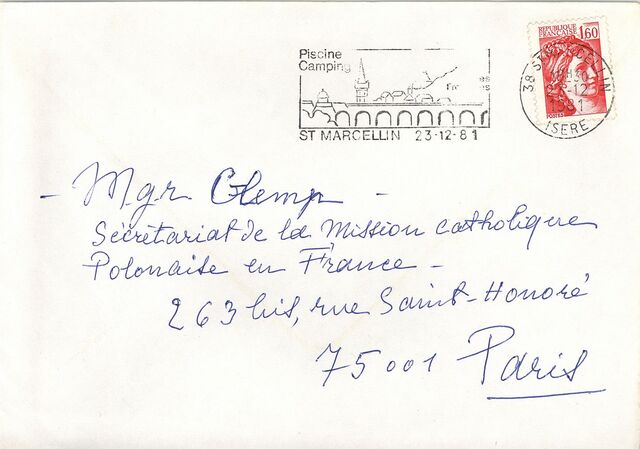 Piscine
Camping
ST MARCELLIN 23-12-81
REPUBLIQUE
FRANÇAISE
1,60
POSTES
38 ST MARCELLIN
18H30
23-12
1981
ISERE
- Mgr. Glemp -
Sécrétariat de la Mission catholique
Polonaise en France -
263 bis, rue Saint-Honoré
75001 Paris